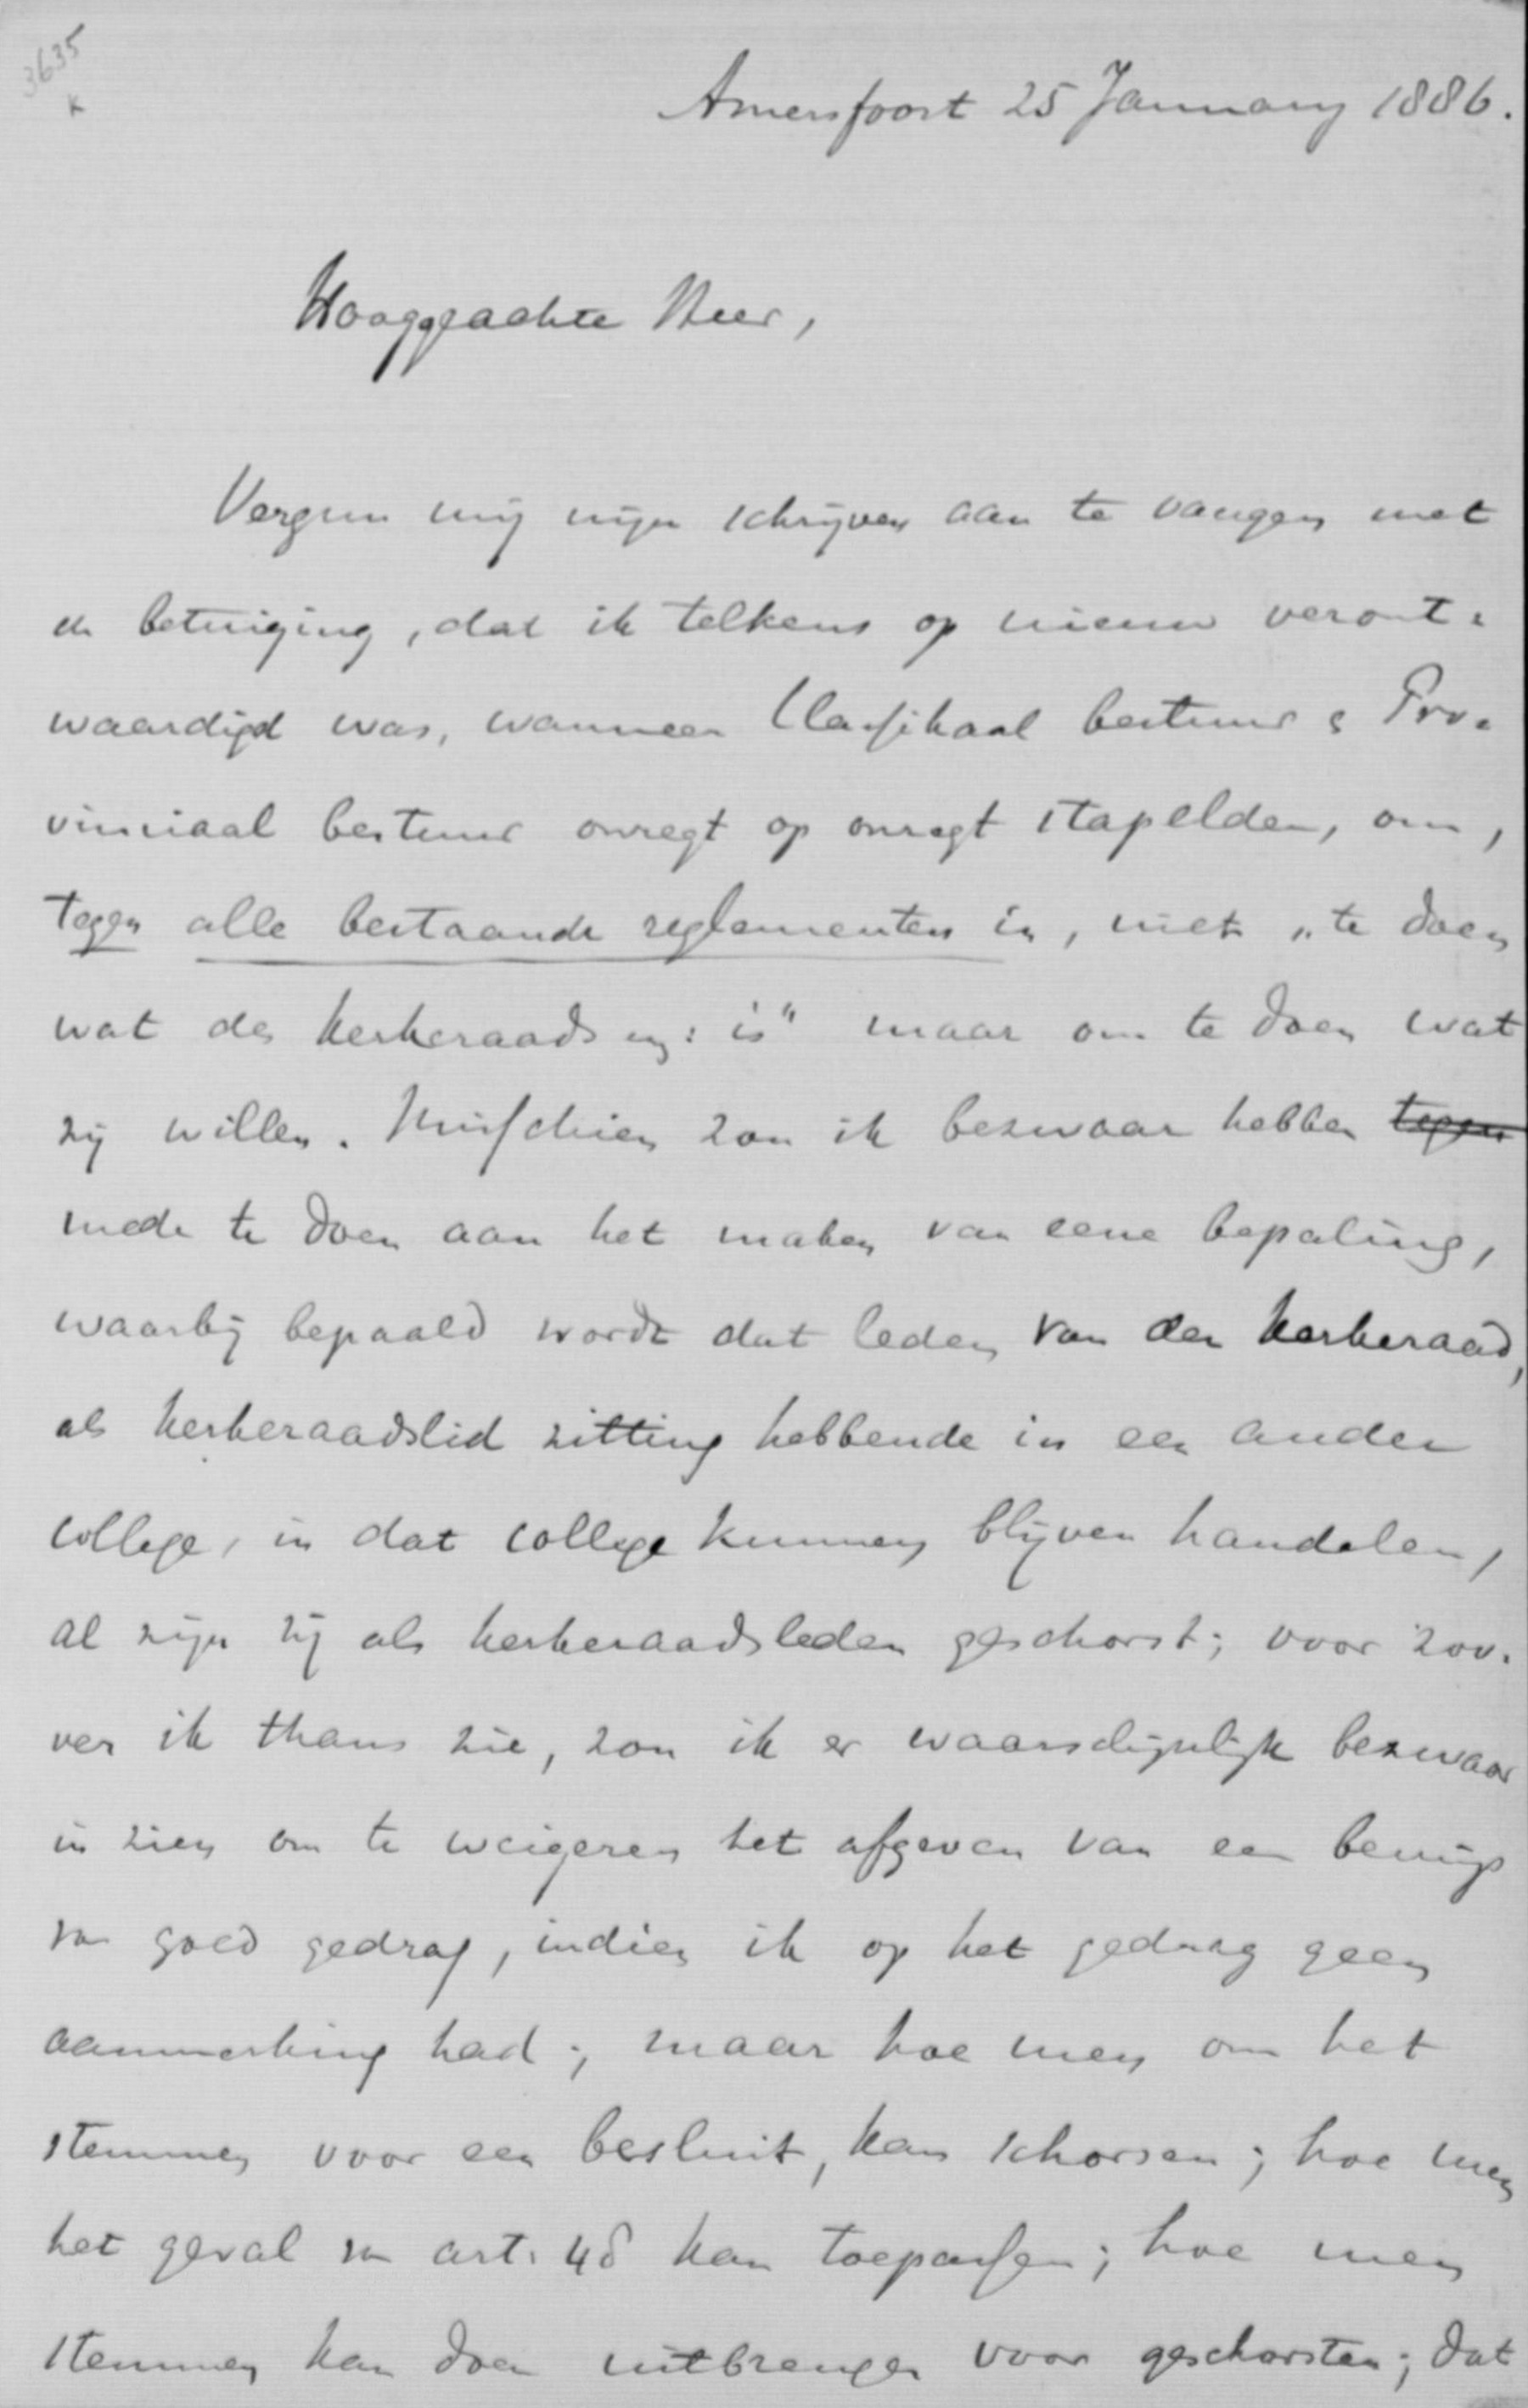 3635
K
Amersfoort 25 January 1886.
Hooggeachte Heer,
Vergun mij mijn schrijven aan te vangen met
de betuiging, dat ik telkens op nieuw veront-
waardigd was, wanneer Classikaal bestuur & Pro-
vinciaal bestuur onregt op onregt stapelden, om,
tegen alle bestaande reglementen in, niet „te doen
wat des kerkeraads is" maar om te doen wat
zij willen. Misschien zou ik bezwaar hebben tegen
mede te doen aan het maken van eene bepaling,
waarbij bepaald wordt dat leden van den kerkeraad,
als kerkeraadslid zitting hebbende in een ander
college, in dat college kunnen blijven handelen,
al zijn zij als kerkeraadsleden geschorst; voor zoo-
ver ik thans zie, zou ik er waarschijnlijk bezwaar
in zien om te weigeren het afgeven van een bewijs
van goed gedrag, indien ik op het gedrag geen
aanmerking had; maar hoe men om het
stemmen voor een besluit, kan schorsen; hoe men
het geval van art. 48 kan toepassen; hoe men
stemmen kan doen uitbrengen voor geschorsten; dat